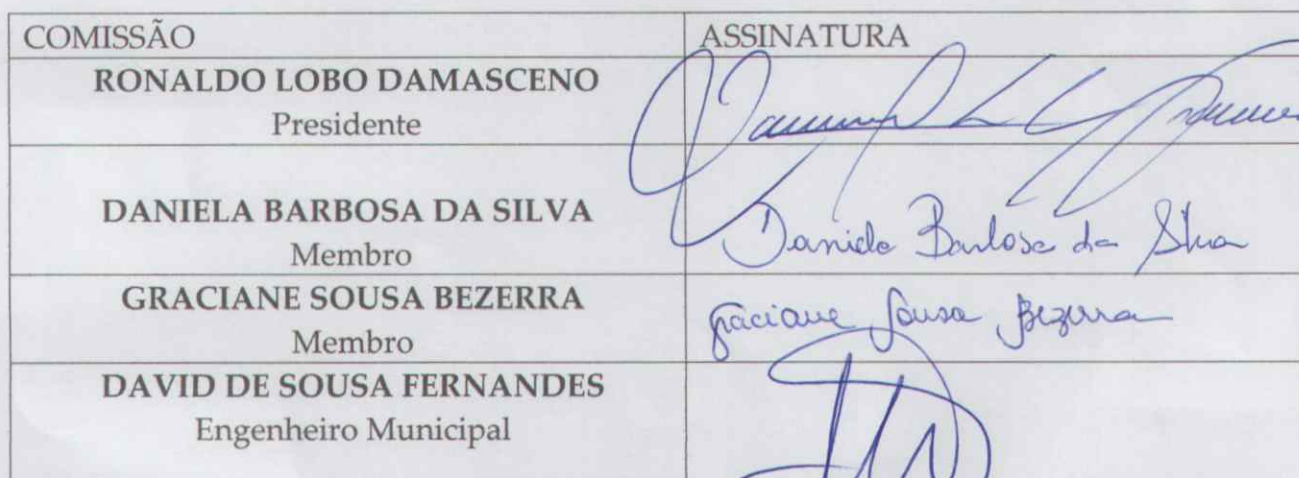 COMISSÃO ASSINATURA
RONALDO LOBO DAMASCENO
Presidente
DANIELA BARBOSA DA SILVA
Membro
Daniela Barbosa da Silva
GRACIANE SOUSA BEZERRA
Membro
Graciane Sousa Bezerra
DAVID DE SOUSA FERNANDES
Engenheiro Municipal